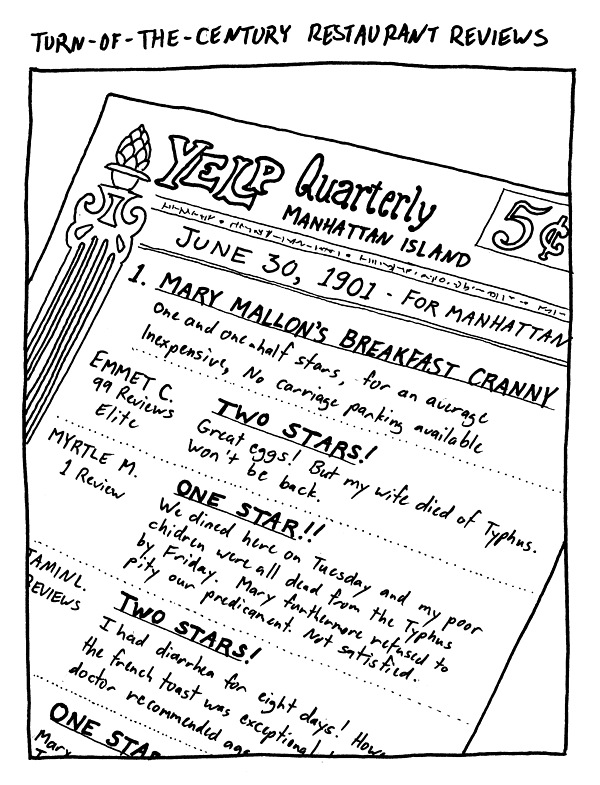 TURN-OF-THE-CENTURY RESTAURANT REVIEWS
YELP Quarterly
MANHATTAN ISLAND
5¢
JUNE 30, 1901 - FOR MANHATTAN
1. MARY MALLON'S BREAKFAST CRANNY
One and one-half stars, for an average
Inexpensive, No carriage parking available
EMMET C.
99 Reviews
Elite
TWO STARS!
Great eggs! But my wife died of Typhus.
Won't be back.
MYRTLE M.
1 Review
ONE STAR!!
We dined here on Tuesday and my poor
chidren were all dead from the Typhus
by Friday. Mary furthermore refused to
pity our predicament. Not satisfied.
TAMIN L.
REVIEWS
TWO STARS!
I had diarrhea for eight days! How
the french toast was exceptional
doctor recommended aga
ONE STAR
Mary